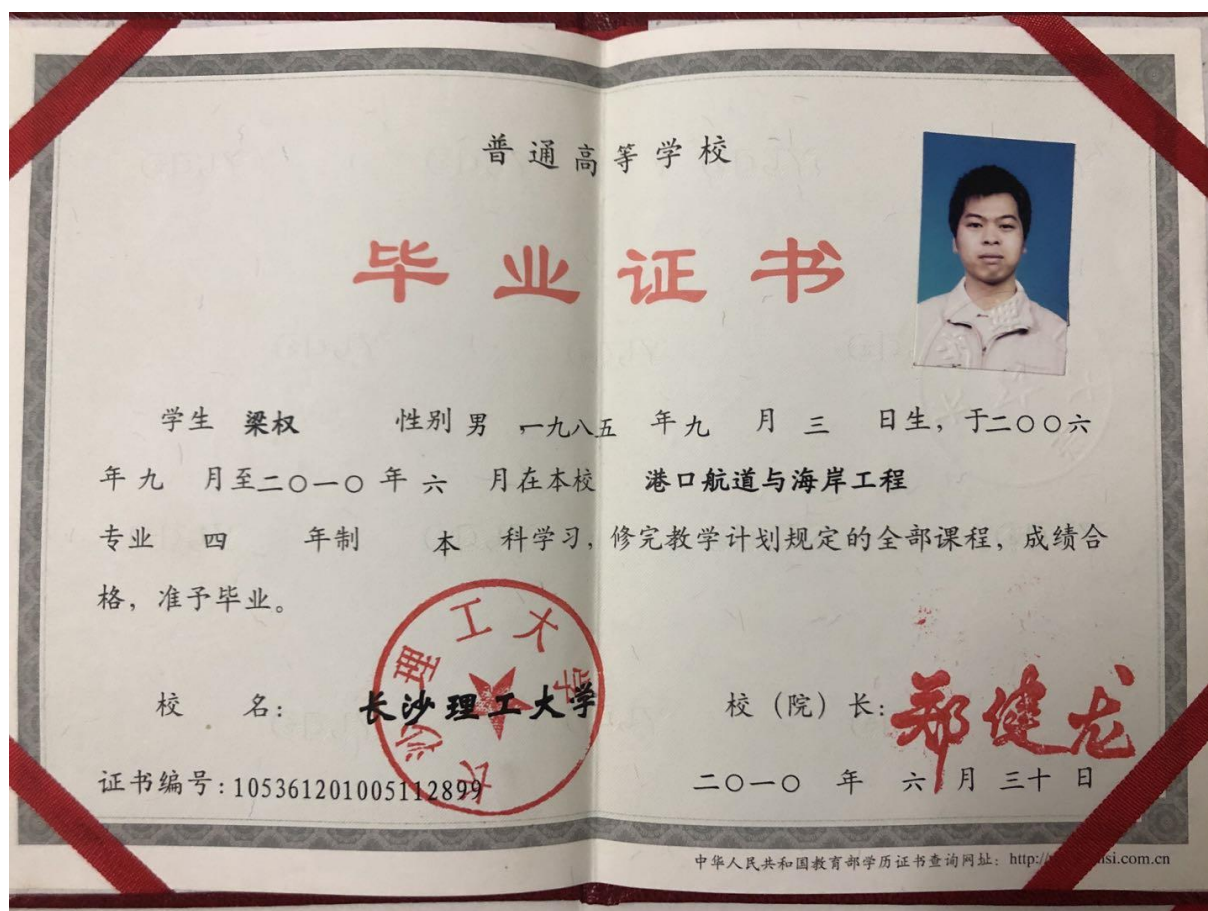 普通高等学校
毕业证书
学生 梁权 性别 男 一九八五 年 九 月 三 日生，于二〇〇六
年 九 月至二〇一〇 年 六 月在本校 港口航道与海岸工程
专业 四 年制 本 科学习，修完教学计划规定的全部课程，成绩合
格，准予毕业。
长沙理工大学
校 名： 长沙理工大学 校（院）长： 郑健龙
证书编号：105361201005112899 二〇一〇 年 六 月 三十 日
中华人民共和国教育部学历证书查询网址：http://
si.com.cn